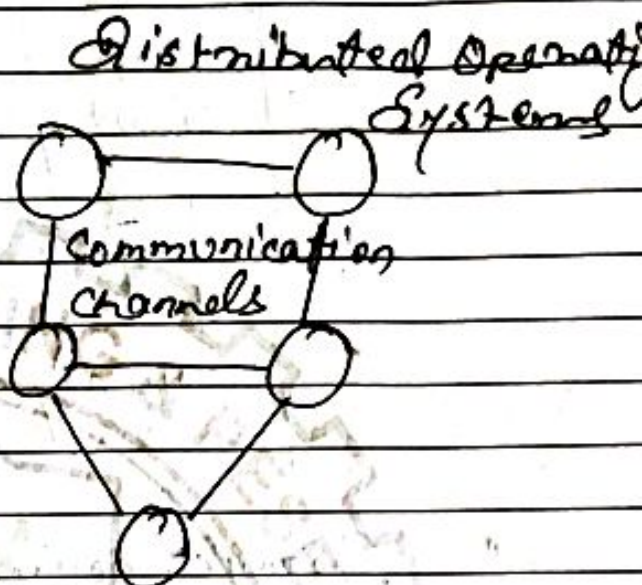 Distributed Operati
Systems
Communication
Channels